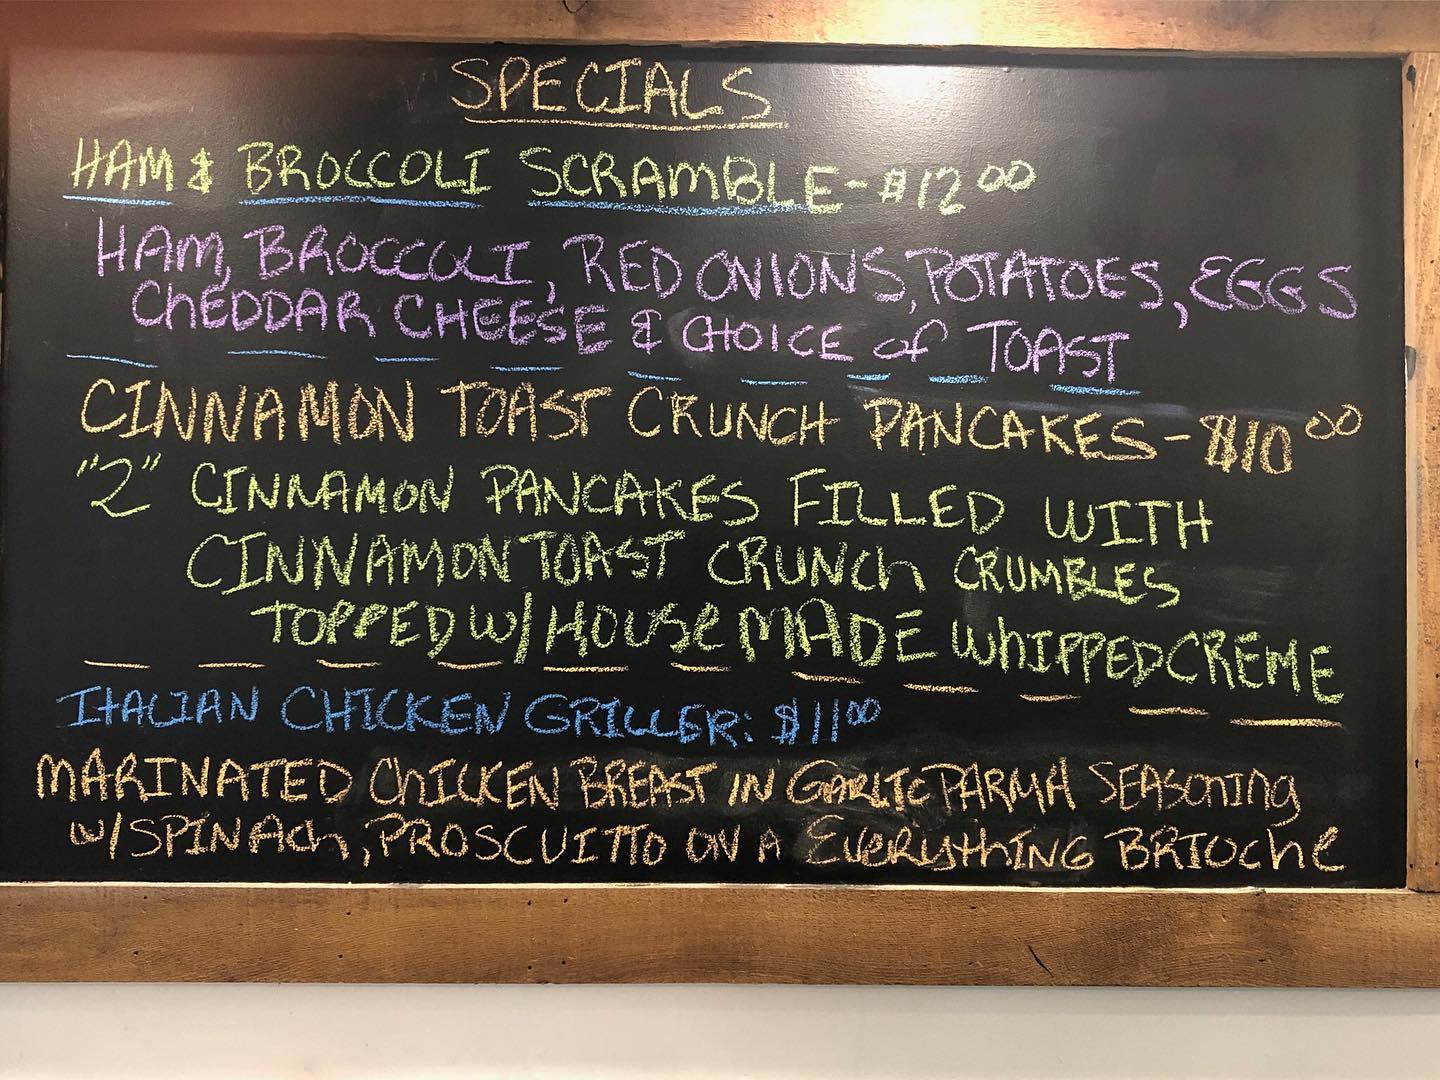 SPECIALS
HAM & BROCCOLI SCRAMBLE-$12.00
HAM, BROCCOLI, RED ONIONS, POTATOES, EGGS
CHEDDAR CHEESE & CHOICE of TOAST
CINNAMON TOAST CRUNCH PANCAKES-$10.00
"2" CINNAMON PANCAKES FILLED WITH
CINNAMON TOAST CRUNCH CRUMBLES
TOPPED w/HOUSE MADE WHIPPED CREME
ITALIAN CHICKEN GRILLER: $11.00
MARINATED CHICKEN BREAST IN GARLIC PARMA SEASONING
w/SPINACH, PROSCUITTO ON A EVERYTHING BRIOCHE